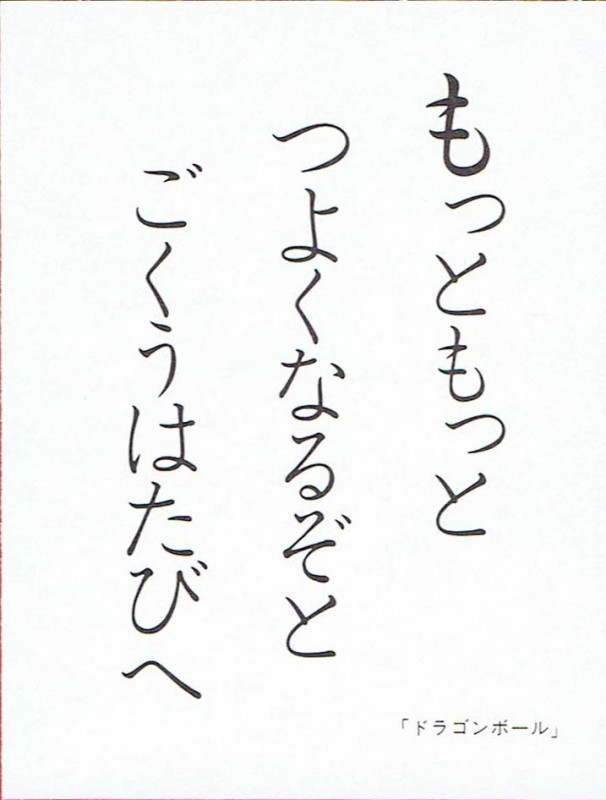 もっともっと
つよくなるぞと
ごくうはたびへ
「ドラゴンボール」